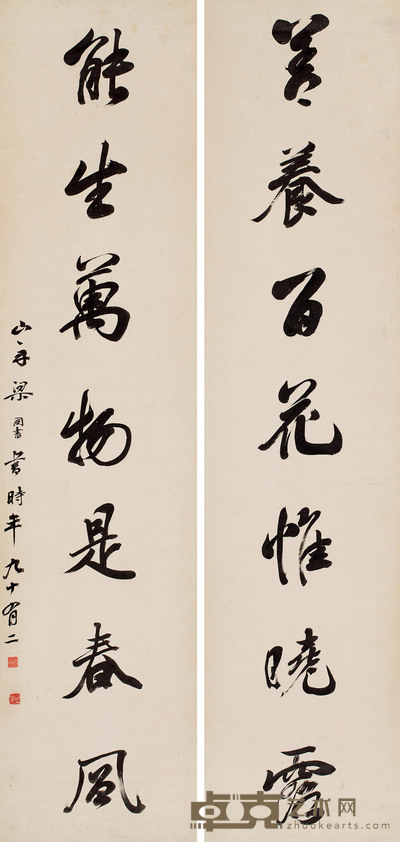 善養百花惟曉露
能生萬物是春風
山舟梁同書書時年九十有二
卓克艺术网
zhuokearts.com